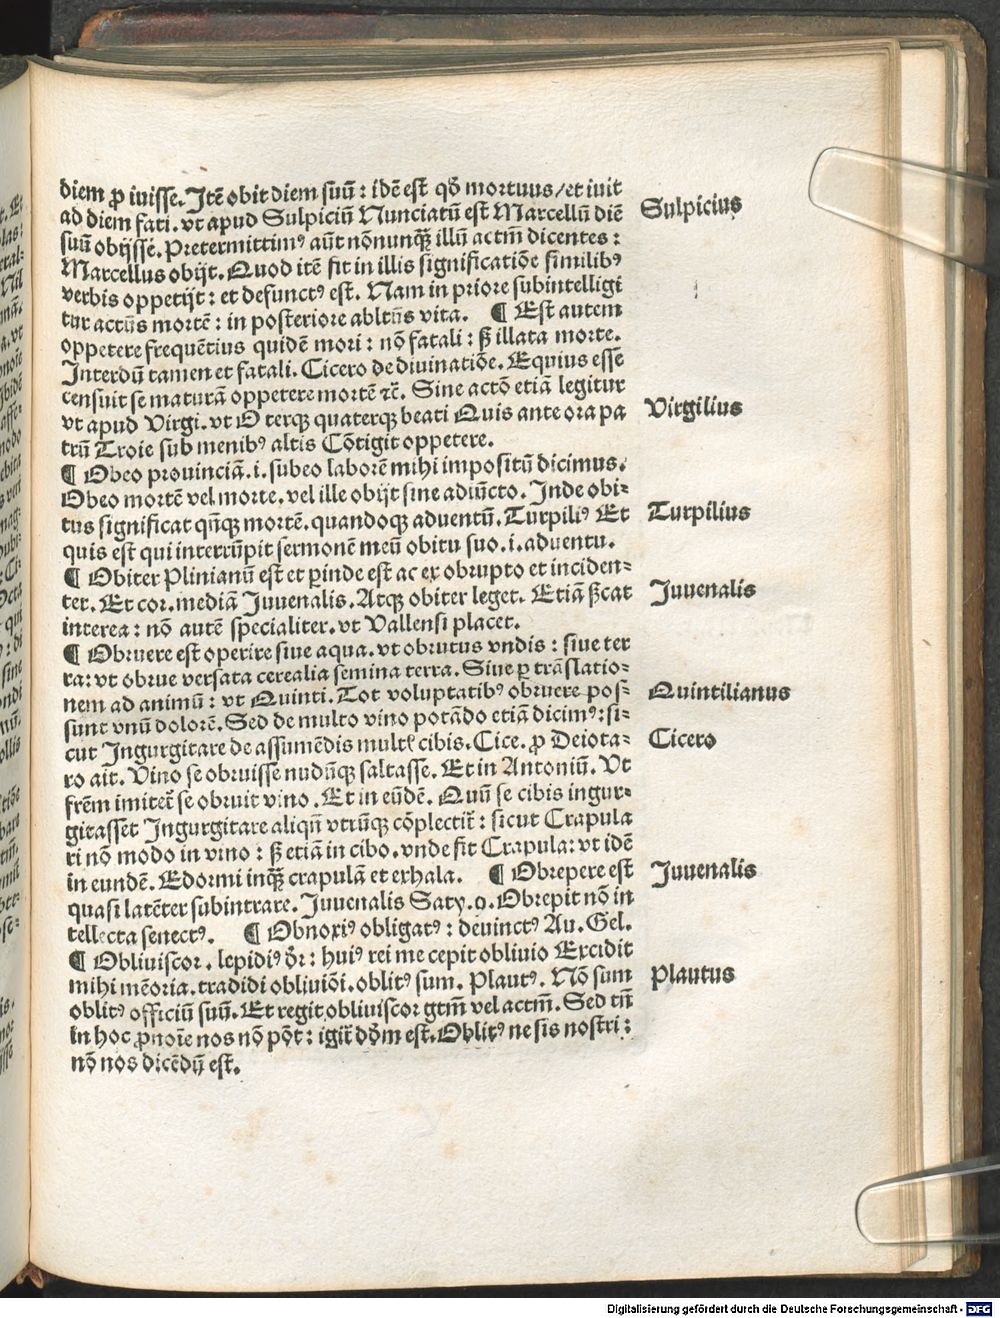 diem ꝓ iuisse. Itē obit diem suū : idē est qđ mortuus / et iuit
ad diem fati. vt apud Sulpiciū Nunciatū est Marcellū diē
Sulpicius
suū obijsse. Pretermittimꝰ aūt nōnunq̄ꝫ illū actm̄ dicentes :
Marcellus obijt. Quod itē fit in illis significatiōe similibꝰ
verbis oppetijt : et defunctꝰ est. Nam in priore subintelligi
tur actūs mortē : in posteriore abltūs vita. ¶ Est autem
oppetere frequētius quidē mori : nō fatali : sꝫ illata morte.
Interdū tamen et fatali. Cicero de diuinatiōe. Equius esse
censuit se maturā oppetere mortē ⁊c̄. Sine actō etiā legitur
vt apud Virgi. vt O terqꝫ quaterqꝫ beati Quis ante ora pa
Virgilius
trū Troie sub menibꝰ altis Cōtigit oppetere.
¶ Obeo prouinciā .i. subeo laborē mihi impositū dicimus.
Obeo mortē vel morte. vel ille obijt sine adiūcto. Inde obi-
tus significat qn̄qꝫ mortē. quandoqꝫ aduentū. Turpiliꝰ Et
Turpilius
quis est qui interrūpit sermonē meū obitu suo .i. aduentu.
¶ Obiter Plinianū est et ꝑinde est ac ex obrupto et inciden-
ter. Et cor. mediā Juuenalis. Atqꝫ obiter leget. Etiā sꝫcat
Juuenalis
interea : nō autē specialiter. vt Vallensi placet.
¶ Obruere est operire siue aqua. vt obrutus vndis : siue ter
ra : vt obrue versata cerealia semina terra. Siue ꝑ trāslatio-
nem ad animū : vt Quinti. Tot voluptatibꝰ obruere pos-
Quintilianus
sunt vnū dolorē. Sed de multo vino potādo etiā dicimꝰ : si-
cut Ingurgitare de assumēdis multꝭ cibis. Cice. ꝓ Deiota-
Cicero
ro ait. Vino se obruisse nudūqꝫ saltasse. Et in Antoniū. Vt
frēm imiteť se obruit vino. Et in eūdē. Quū se cibis ingur-
gitasset Ingurgitare aliqn̄ vtrūqꝫ cōplectiť : sicut Crapula
ri nō modo in vino : sꝫ etiā in cibo. vnde fit Crapula : vt idē
in eundē. Edormi inqꝫ crapulā et exhala. ¶ Obrepere est
Juuenalis
quasi latēter subintrare. Juuenalis Saty. 9. Obrepit nō in
tellecta senectꝰ. ¶ Obnoxiꝰ obligatꝰ : deuinctꝰ Au. Gel.
¶ Obliuiscor. lepidiꝰ dr̄ : huiꝰ rei me cepit obliuio Excidit
mihi mēoria. tradidi obliuiōi. oblitꝰ sum. Plautꝰ. Nō sum
Plautus
oblitꝰ officiū suū. Et regit obliuiscor gtm̄ vel actm̄. Sed tn̄
in hoc ꝓnoīe nos nō pōt : igiť dđm est. Oblitꝰ ne sis nostri :
nō nos dicēdū est.
Digitalisierung gefördert durch die Deutsche Forschungsgemeinschaft - DFG